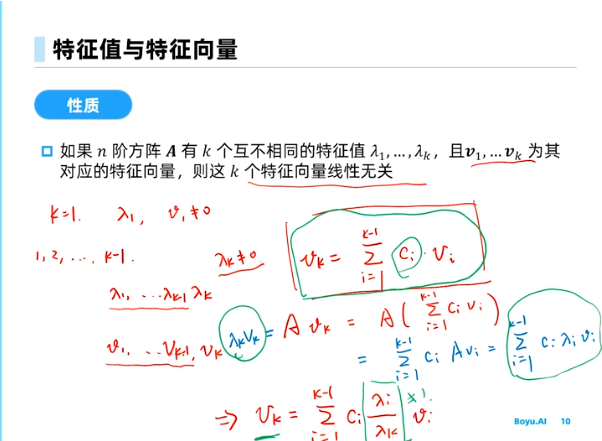 特征值与特征向量
性质
如果 n 阶方阵 A 有 k 个互不相同的特征值 λ₁,…,λₖ，且v₁,…vₖ 为其
对应的特征向量，则这 k 个特征向量线性无关
k=1. λ₁, v₁≠0
1, 2, …, k-1.
λₖ≠0
vₖ = ∑_{i=1}^{k-1} cᵢ·vᵢ
λ₁, …λₖ₋₁ λₖ
v₁, …vₖ₋₁, vₖ
λₖvₖ = A vₖ = A(∑_{i=1}^{k-1} cᵢvᵢ)
= ∑_{i=1}^{k-1} cᵢ Avᵢ = ∑_{i=1}^{k-1} cᵢ λᵢ vᵢ
⇒ vₖ = ∑_{i=1}^{k-1} cᵢ λᵢ/λₖ vᵢ
≠1.
Boyu.AI 10